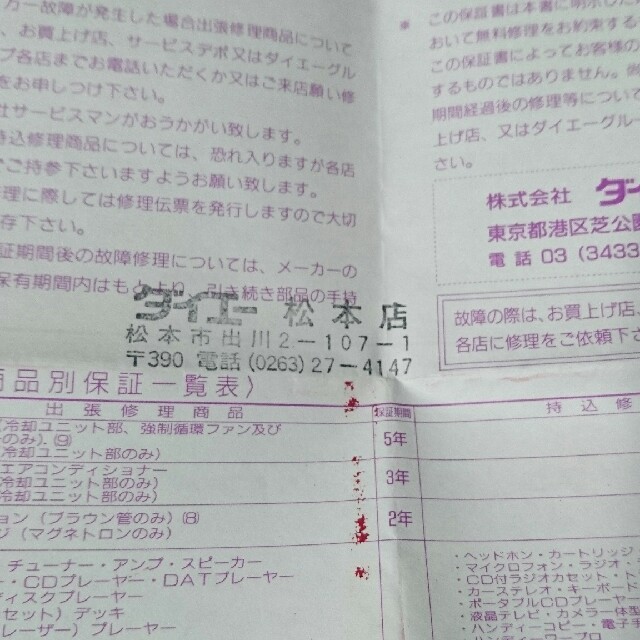 カー故障が発生した場合出張修理商品について
、お買上げ店、サービスデポ又はダイエーグル
プ各店までお電話いただくか又はご来店願い修
をお申しつけ下さい。
社サービスマンがおうかがい致します。
持込修理商品については、恐れ入りますが各店
ご持参下さいますようお願い致します。
理に際しては修理伝票を発行しますので大切
存下さい。
証期間後の故障修理については、メーカーの
保有期間内はもとより、引き続き部品の手持
ダイエー 松本店
松本市出川2-107-1
〒390 電話(0263)27-4147
※ この保証書は本書に明示した
おいて無料修理をお約束する
この保証書によってお客様の
するものではありません。
期間経過後の修理等につい
上げ店、又はダイエーグルー
さい。
株式会社 ダ
東京都港区芝公園
電話 03 (3433
故障の際は、お買上げ店、
各店に修理をご依頼下
商品別保証一覧表〉
出張修理商品
保証期間
持込修
冷却ユニット部、強制循環ファン及び
のみ)
冷却ユニット部のみ)
5年
エアコンディショナー
冷却ユニット部のみ)
3年
ョン(ブラウン管のみ)
ジ(マグネトロンのみ)
2年
チューナー・アンプ・スピーカー
・CDプレーヤー・DATプレーヤー
ィスクプレーヤー
セット)デッキ
レーザー)プレーヤー
・ヘッドホン・カートリッジ
・マイクロフォン・ラジオ
・CD付ラジオカセット・ト
・カーステレオ・キーボート
・ポータブルCDプレーヤー
・液晶テレビ
・ハンディーコピー・電子